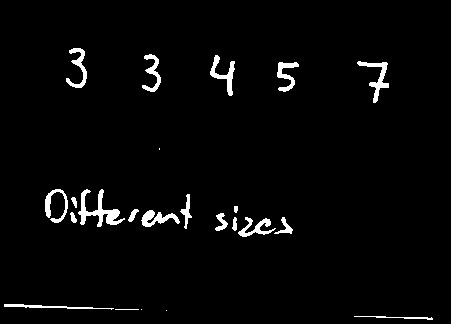 3 3 4 5 7
Different sizes